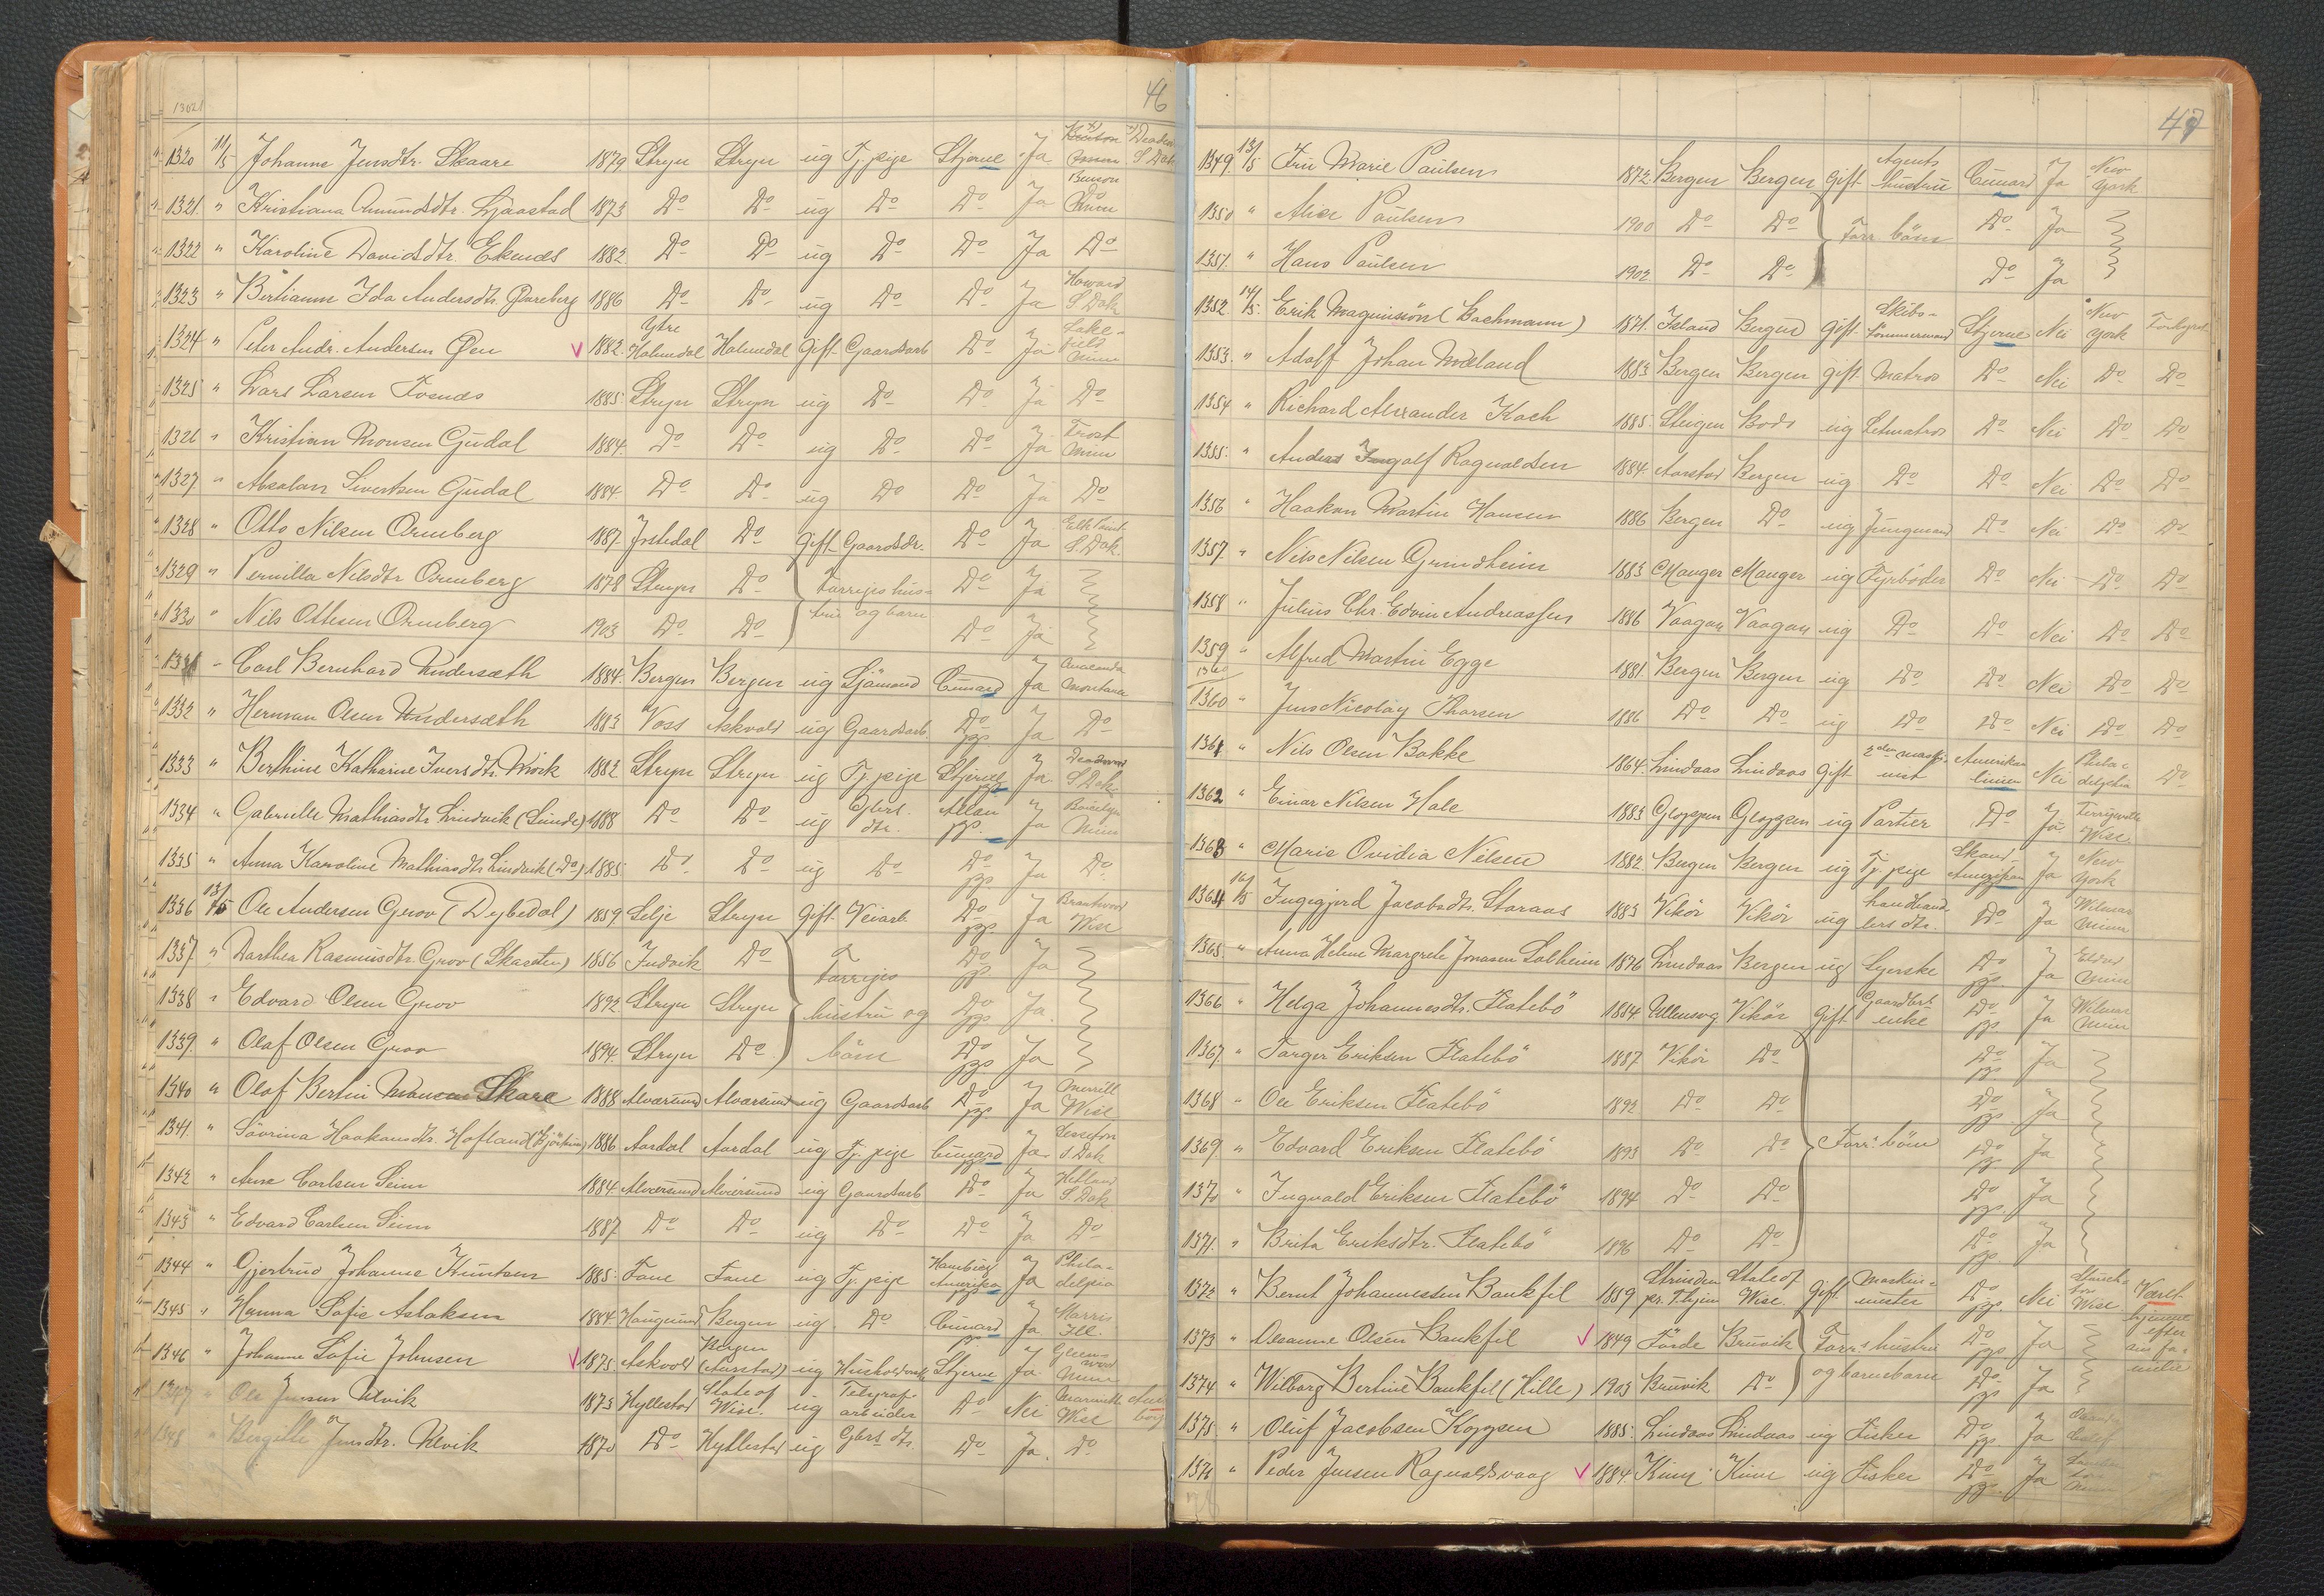 46
13021
1320 11/5 Johanne Jensdtr. Skaare 1879 Stryn Stryn ug Tj. pige Stjerne Ja Benton Minn Deadwood S Dak
1321. " Kristiana Amundsdtr. Ljaastad 1873 Do Do ug Do Do Ja Benson Do Minn
1322 " Karoline Davidsdtr. Ekenæs 1882 Do Do ug Do Do Ja Do
1323 " Bertianne Ida Andersdtr. Öareberg 1886 Do Do ug Do Do Ja Howard S Dak
1324 " Peter Andr. Andersen Øen 1882. Ytre Holmedal Holmedal Gift Gaardsarb Do Ja Lakefield Minn
1325 " Lars Larsen Fosnæs 1885 Stryn Stryn ug Do Do Ja Do
1326 " Kristian Monsen Gudal 1884. Do Do ug Do Do Ja Frost Minn
1327 " Absalon Sivertsen Gudal 1884. Do Do ug Do Do Ja Do
1328 " Otto Nilsen Ormberg 1887 Jostedal Do Gift Gaardbr. Do Ja Elk Point S. Dak.
1329 " Pernilla Nilsdtr Ormberg 1878 Stryn Do Forriges hus= Do Ja
1330 " Nils Ottesen Ormberg 1903 Do Do tru og barn Do Ja
1331 " Carl Bernhard Undersæth 1884. Bergen Bergen ug Sjömand Cunard Ja Anaconda Montana
1332 " Herman Olsen Undersæth 1883 Voss Askvold ug Gaardsarb. Do pp. Ja Do
1333 " Berthine Katharine Iversdtr. Mork 1882 Stryn Stryn ug Tj. pige Stjerne pp Ja Deadwood S Dak.
1334 " Gabrielle Mathiasdtr. Lindvik (Sunde) 1888 Do Do ug Gbrs. dtr. Allan pp. Ja Minn
1335 " Anna Karoline Mathiasdtr Lindvik (Do) 1885 Do Do ug Do Do pp Ja Do
1336 13/5 Ole Andersen Grov (Dybedal) 1859 Selje Stryn Gift Veiarb Do pp. Ja Brantwood Wisc
1337. " Dorthea Rasmusdtr. Grov (Skarsten) 1856 Indvik Do Forriges Do pp Ja
1338 " Edvard Olsen Grov 1892 Stryn Stryn hustru og Do pp Ja.
1339. " Olaf Olsen Grov 1894. Stryn Do börn Do pp Ja
1340 " Olaf Bertin Monsen Skare 1888 Alversund Alversund ug Gaardsarb Do pp. Ja Merrill Wisc
1341. " Sövrina Haakonsdtr. Hofland 1886 Aardal Aardal ug Tj. pige Cunard pp. Ja S. Dak
1342 " Arne Carlsen Seim 1884. Alversund Alversund ug Gaardsarb Do Ja Hetland S. Dak.
1343 " Edvard Carlsen Seim 1887. Do Do ug Do Do Ja Do
1344 " Gjertrud Johanne Knutsen 1885. Fane Fane ug Tj. pige Hamburg Amerika pp Ja Phila= delpia
1345 " Hanna Sofie Aslaksen 1884. Haugesund Bergen ug. Do Cunard pp. Ja Morris Ill.
1346 " Johanne Sofie Johnsen 1875. Askvold Bergen (Aarstad) ug Stjerne Ja Glenwood Minn
1347 " Ole Jensen Ulvik 1873 Hyllestad State of Wisc. ug Telegraf- arbeider Do Nei Wisc
1348 " Bergitte Jensdtr. Ulvik 1870 Do Hyllestad ug Gbrs dtr. Do Ja. Do
47
1349. 13/5 Fru Marie Paulsen 1872. Bergen Bergen Gift Agents hustru Cunard Ja New York
1350 " Alice Paulsen 1900 Do Do Forr. börn Do Ja
1351. " Hans Paulsen 1902 Do Do Do Ja
1352. 14/5. Erik Magnusson (Bachmann) 1871. Island Bergen Gift Skibs- tömmermand Stjerne Nei New York
1353. " Adolf Johan Mæland 1883 Bergen Bergen gift Matros Do Nei Do Do
1354 " Richard Alexander Koch 1885. Steigen Bodø ug Letmatros Do Nei Do Do
1355. " Anders Ingolf Ragnvaldsen 1884. Aarstad Bergen ug Do Do Nei Do Do
1356 " Haakon Martin Hansen 1886 Bergen Do ug Jungmand Do Nei Do Do
1357. " Nils Nilsen Grindheim 1883 Manger Manger ug Fyrböder Do Nei Do Do
1358 " Julius Chr. Edvin Andreassen 1886 Vaagan Vaagan ug Do Do Nei Do Do
1359 " Alfred Martin Egge 1881. Bergen Bergen ug Do Do Nei Do Do
1360
1360 " Jens Nicolay Thorsen 1886 Do Do ug Do Do Nei Do Do
1361. " Nils Olsen Bakke 1864. Lindaas Lindaas Gift 2den mask- mst Amerika linien Nei Phila= delphia Do
1362 " Einar Nilsen Hole 1883 Gloppen Gloppen ug Portier Do Ja Wisc.
1363 " Marie Ovidia Nilsen 1882. Bergen Bergen ug Tj. pige Skand- Amerikan Ja New York
1364 16/5 Ingigjerd Jacobsdtr. Storaas 1883 Vikör Vikör ug Landhand- lers dtr. Do Ja Wilmar Minn
1365. " Anna Helene Margrete Jonasen Solheim 1876 Lindaas Bergen ug Syerske Do pp. Ja Minn
1366 " Helga Johannesdtr. Flatebö 1854. Ullensvg Vikör Gift Gaardbrk. enke Do pp. Ja Wilmar Minn
1367. " Torger Eriksen Flatebö 1887 Vikör Do Do pp. Ja
1368 " Ole Eriksen Flatebö 1892 Do Do Do pp. Ja
1369 " Edvard Eriksen Flatebö 1893 Do Do Forrs. börn Do pp Ja
1370 " Ingvald Eriksen Flatebö 1894 Do Do Do pp. Ja
1371. " Brita Eriksdtr. Flatebö 1896 Do Do Do pp. Ja
1372 " Bernt Johannessen Bankfil 1859 Strinden pr. Thjem State of Wisc. Gift Maskin= mester Do pp. Nei Wisc. Været hjemme efter sin fa= milie
1373 " Oleanne Olsen Bankfil 1849 Förde Bruvik Forrs. hustru Do pp. Ja
1374 " Wilborg Bertine Bankfil (Hille) 1903 Bruvik Do og barnebarn Do pp. Ja
1375. " Oluf Jacobsen Koppen 1885. Lindaas Lindaas ug Fisker Do pp. Ja
1376 " Peder Jensen Ragnvaldsvaag 1884. Kinn Kinn ug Fisker Do pp. Ja Minn